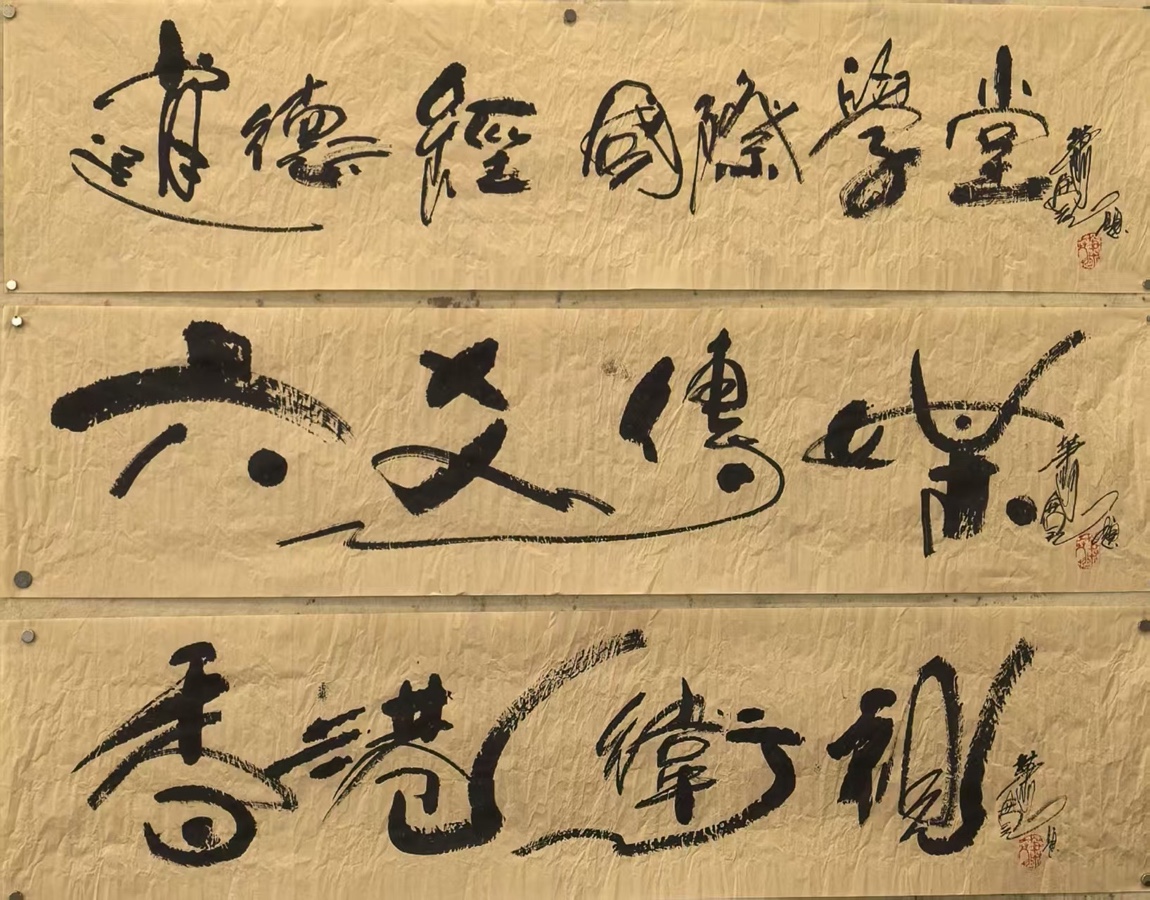 道德經國際學堂
六爻傳媒
香港衛視